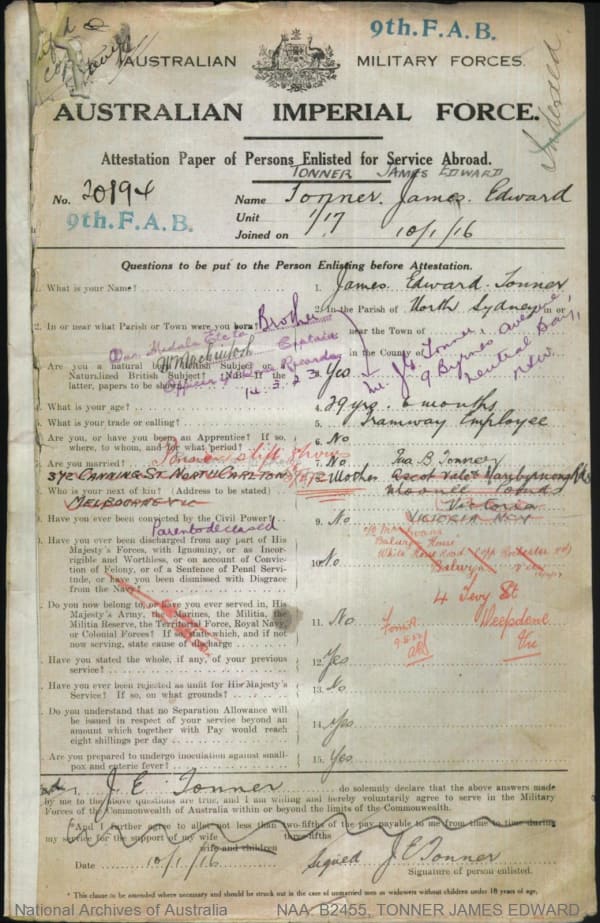 9th. F. A. B.
AUSTRALIAN MILITARY FORCES.
AUSTRALIAN IMPERIAL FORCE.
Attestation Paper of Persons Enlisted for Service Abroad.
TONNER JAMES EDWARD
No. 20194 Name Tonner. James. Edward
9th. F. A. B.
Unit 1/17
Joined on 10/1/16
Questions to be put to the Person Enlisting before Attestation.
1. What is your Name? 1. James Edward Tonner
2. In or near what Parish or Town were you born? 2. In the Parish of North Sydney in or
near the Town of
in the County of
Brother
Mr J. Tonner
9 Byrnes Avenue
Neutral Bay,
NSW.
War Medals Etc to
Captain
Officer i/c Base Records
14.3.23
Are you a natural born British Subject or a
Naturalized British Subject? (N.B.—If the
latter, papers to be shown) Yes
What is your age? 4. 29 yrs. 6 months
What is your trade or calling? 5. Tramway Employee
Are you, or have you been an Apprentice? If so,
where, to whom, and for what period? 6. No
Are you married? 7. No
372 CANNING ST NORTH CARLTON
Who is your next of kin? (Address to be stated) Mother
Ascot Vale Maribyrnong Rd
Moonee Ponds
Victoria
MELBOURNE VIC
Have you ever been convicted by the Civil Power? 9. No
Parents deceased
Have you ever been discharged from any part of His
Majesty's Forces, with Ignominy, or as Incor-
rigible and Worthless, or on account of Convict-
ion of Felony, or of a Sentence of Penal Servi-
tude, or have you been dismissed with Disgrace
from the Navy? 10. No
White Horse Road
Balwyn Vic
4 Levy St
Deepdene
Vic
Do you now belong to, or have you ever served in, His
Majesty's Army, the Marines, the Militia, the
Militia Reserve, the Territorial Force, Royal Navy
or Colonial Forces? If so, state which, and if not
now serving, state cause of discharge 11. No
Have you stated the whole, if any, of your previous
service? 12. Yes
Have you ever been rejected as unfit for His Majesty's
Service? If so, on what grounds? 13. No
Do you understand that no Separation Allowance will
be issued in respect of your service beyond an
amount which together with Pay would reach
eight shillings per day 14. Yes
Are you prepared to undergo inoculation against small-
pox and enteric fever? 15. Yes
I, J. E. Tonner do solemnly declare that the above answers made
by me to the above questions are true, and I am willing and hereby voluntarily agree to serve in the Military
Forces of the Commonwealth of Australia within or beyond the limits of the Commonwealth.
*And I further agree to allot not less than two-fifths of the pay payable to me from time to time during
three-fifths
my service for the support of my wife
wife and children
Date 10/1/16 Signed J E Tonner
Signature of person enlisted.
* This clause to be amended where necessary and should be struck out in the case of unmarried men or widowers without children under 18 years of age.
National Archives of Australia NAA: B2455, TONNER JAMES EDWARD